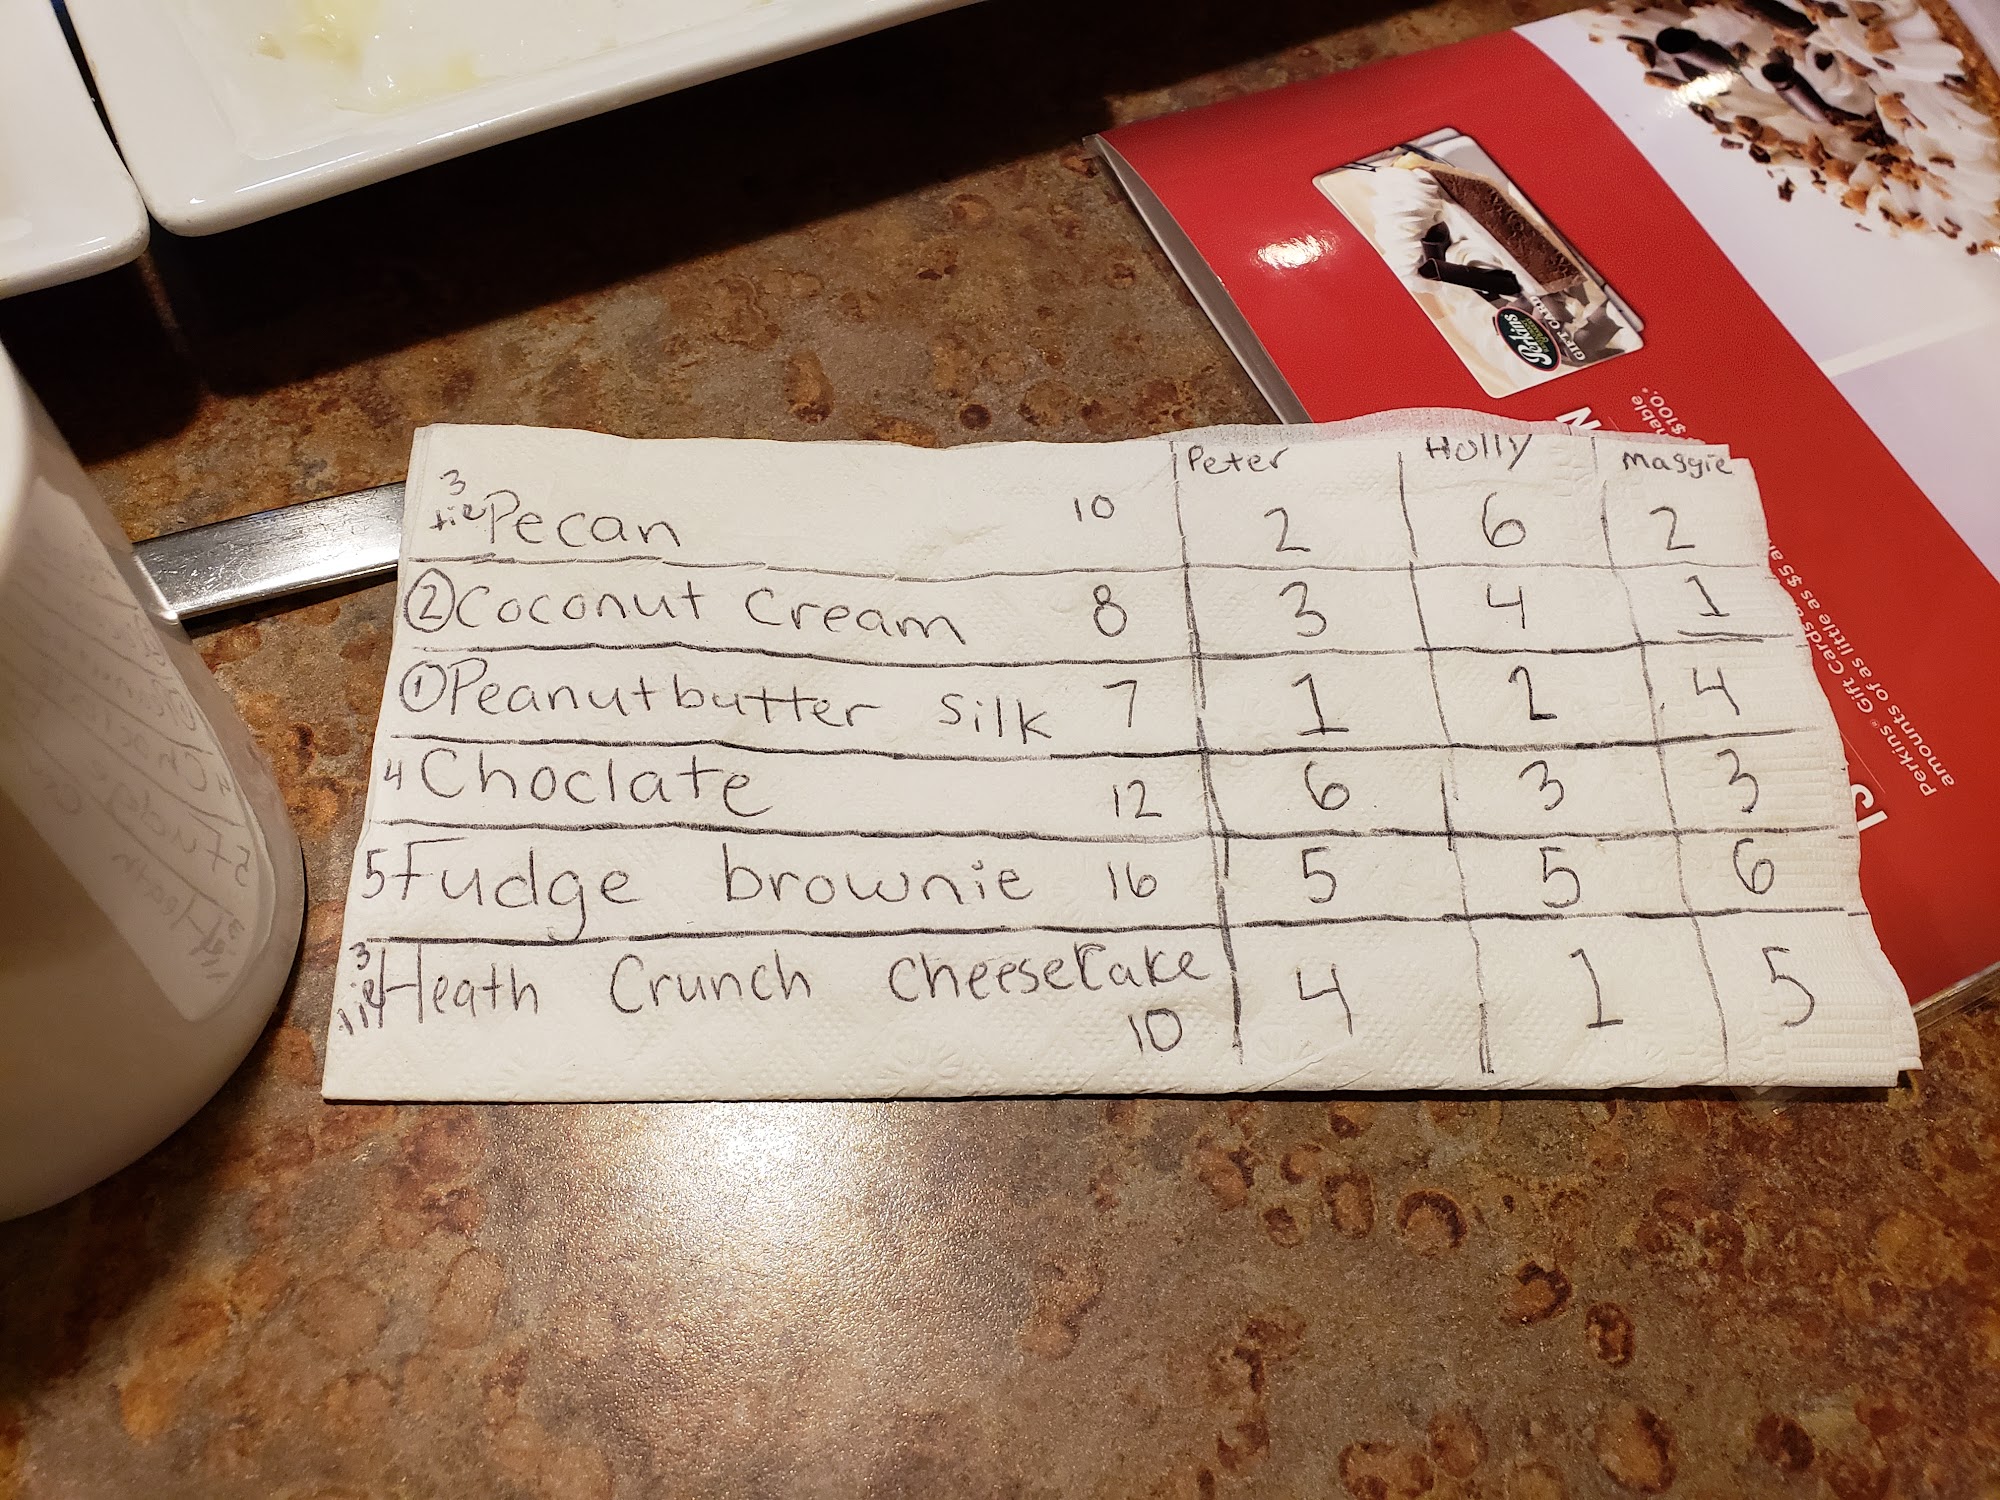 Peter Holly Maggie
3
tie Pecan 10 2 6 2
② Coconut Cream 8 3 4 1
① Peanutbutter Silk 7 1 2 4
4 Choclate 12 6 3 3
5 Fudge brownie 16 5 5 6
3
tie Heath Crunch Cheesecake 4 1 5
10
Perkins
GIFT CARD
N
$100.*
Perkins® Gift Cards
amounts of as little as $5